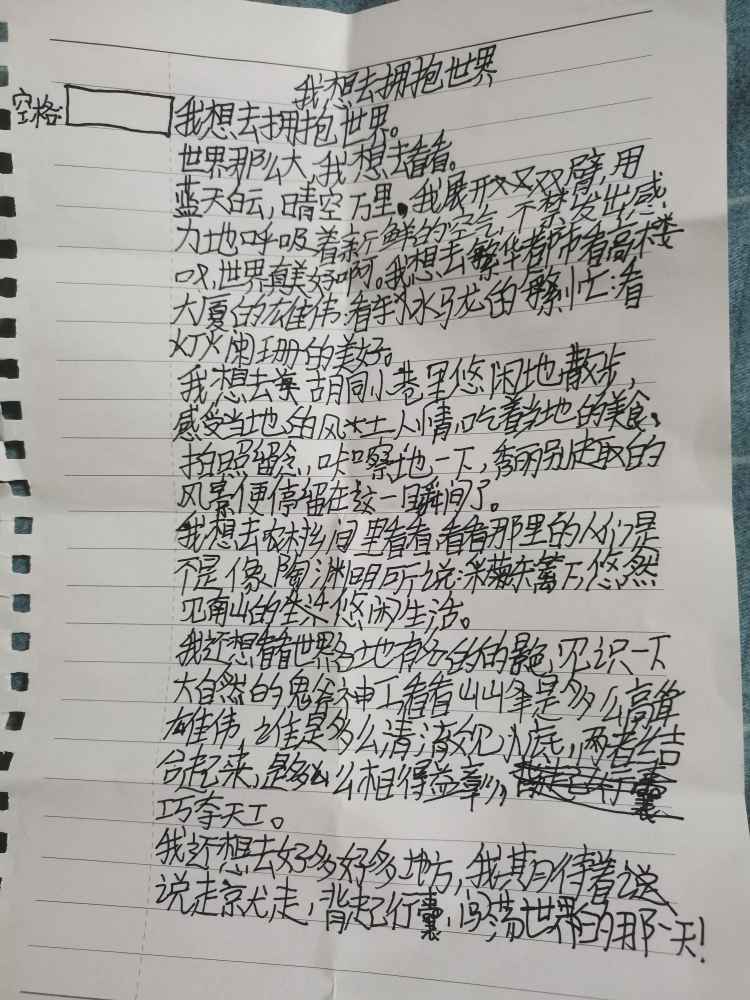 我想去拥抱世界
空格:
我想去拥抱世界。
世界那么大,我想去看看。
蓝天白云,晴空万里。我展开双臂,用
力地呼吸着新鲜的空气,不禁发出感
叹,世界真美好啊。我想去繁华都市看高楼
大厦的雄伟;看车水马龙的繁忙;看
灯火阑珊的美好。
我想去胡同小巷里悠闲地散步,
感受当地的风土人情,吃着当地的美食、
拍照留念,咔嚓地一下,秀丽别
风景便停留在这一瞬间了。
我想去农村乡间里看看,看看那里的人们是
不是像陶渊明所说:采菊东篱下悠然
见南山的悠闲生活。
我还想看看世界各地有名的景色,见识一下
大自然的鬼斧神工看看山峰是多么高耸
雄伟,是多么清澈见底,两者结
合起来,是多么相得益彰,
巧夺天工。
我还想去好多好多地方,我期待着说
说走就走,背起行囊,闯荡世界的那一天!